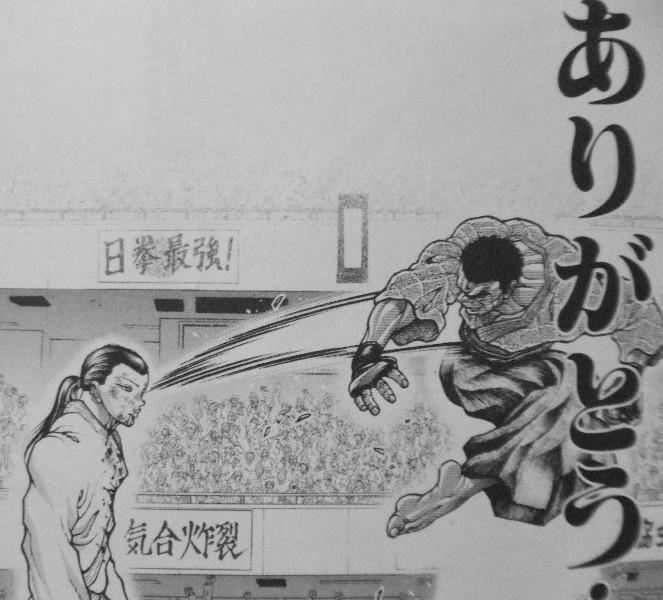 ありがとう・
日拳最強!
気合炸裂